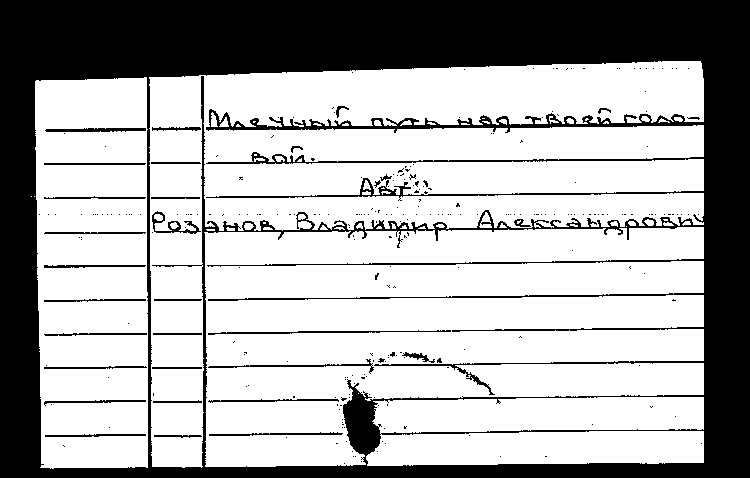 Млечный путь над твоей голо-
вой.
Авт.
Розанов, Владимир Александрович